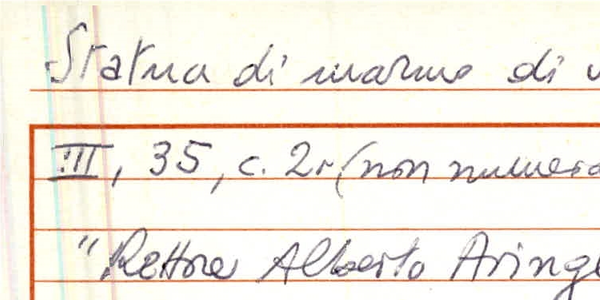 Statua di marmo di
III, 35, c. 2r (non numera
"Rettore Alberto Aringh